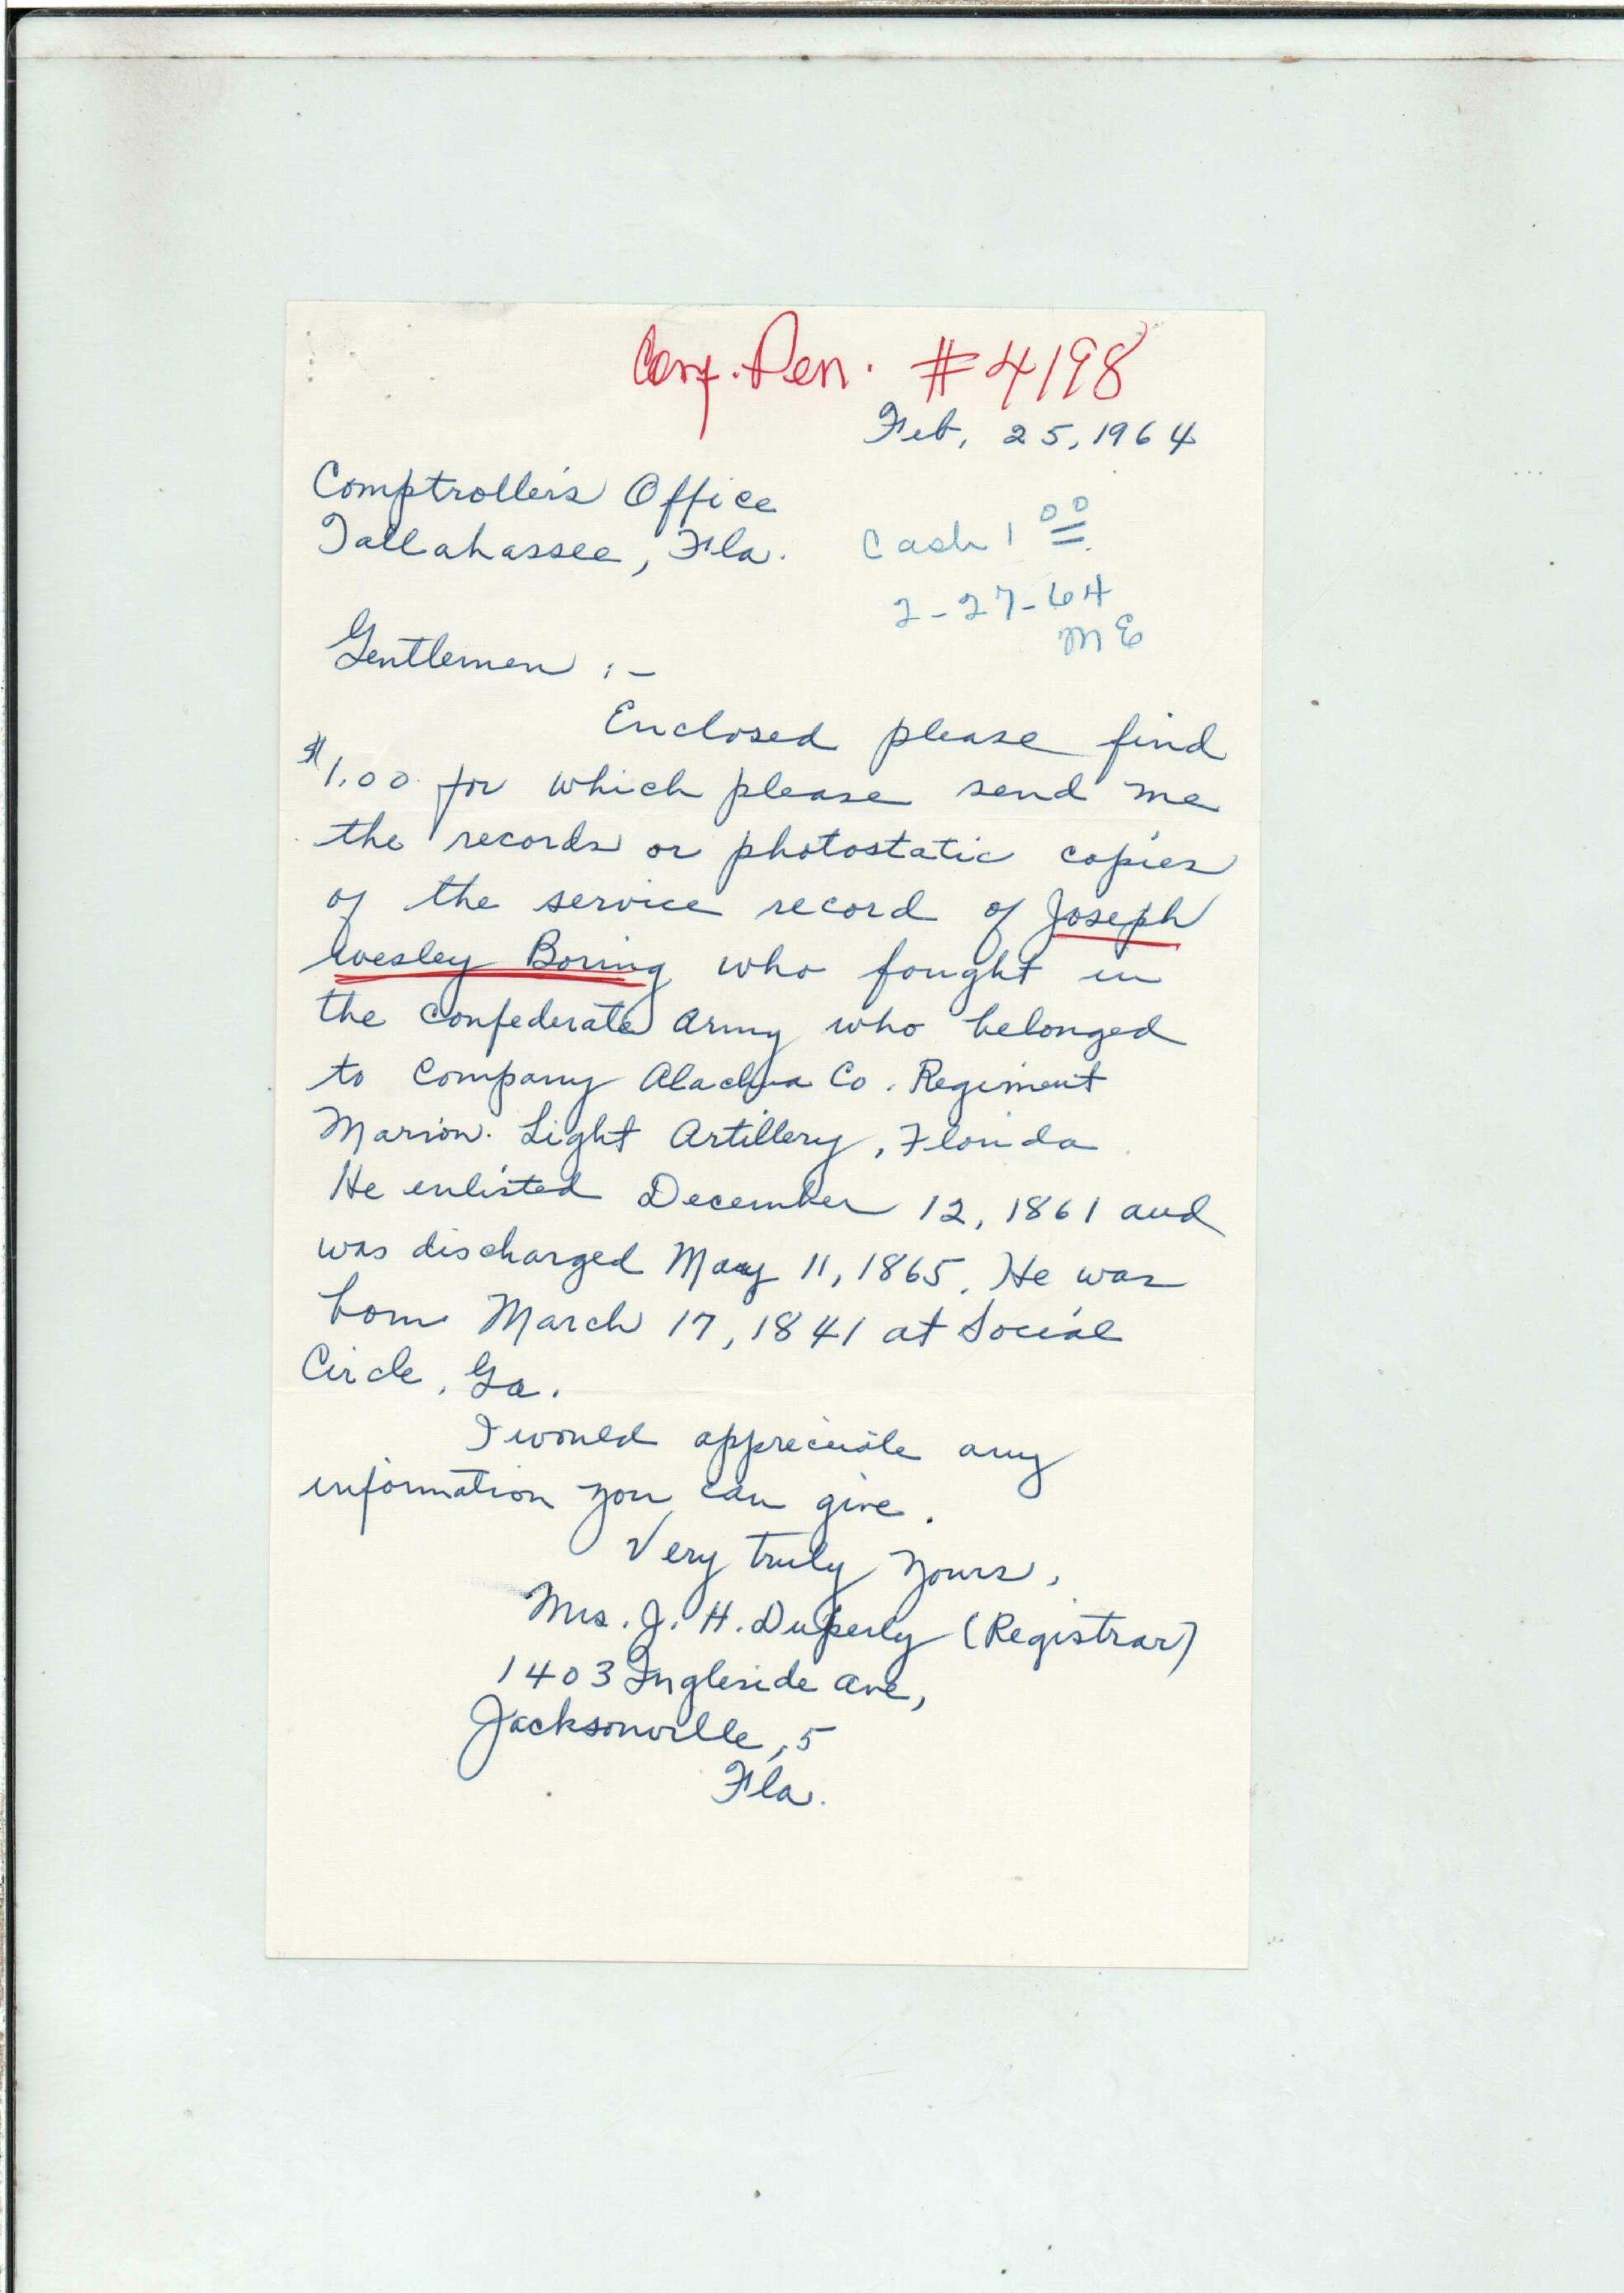 Conf. Pen. #4198
Feb, 25, 1964
Comptroller's Office
Tallahassee, Fla.
Cash 1 00
2-27-64
ME
Gentlemen :-
Enclosed please find
$1.00 for which please send me
the records or photostatic copies
of the service record of Joseph
Wesley Boring who fought in
the Confederate Army who belonged
to Company Alachua Co. Regiment
Marion. Light Artillery, Florida
He enlisted December 12, 1861 and
was discharged May 11, 1865. He was
born March 17, 1841 at Social
Circle, Ga.
I would appreciate any
information you can give.
Very truly yours,
Mrs. J. H. Duperly (Registrar)
1403 Ingleside Ave,
Jacksonville, 5
Fla.